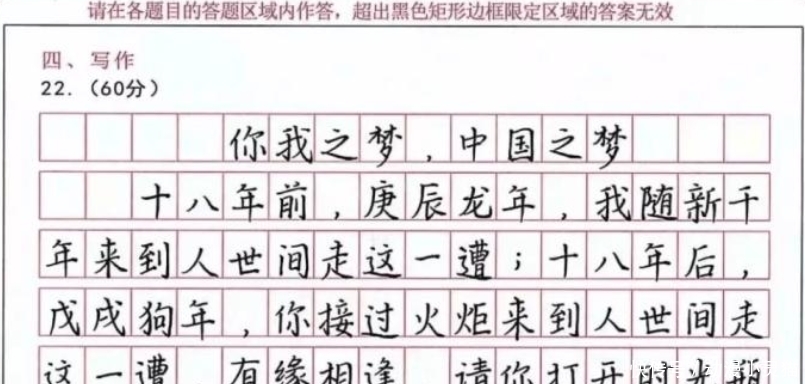 请在各题目的答题区域内作答，超出黑色矩形边框限定区域的答案无效
四、写作
22.（60分）
你我之梦，中国之梦
十八年前，庚辰龙年，我随新千
年来到人世间走这一遭；十八年后，
戊戌狗年，你接过火炬来到人世间走
这一遭 有缘相逢 请你打开时光